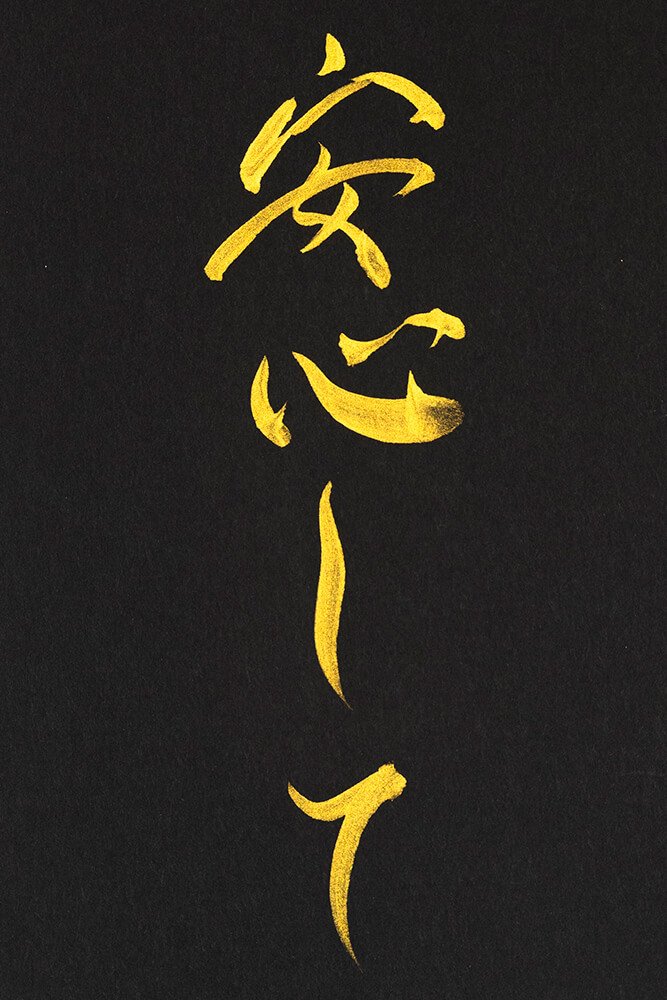 安心して